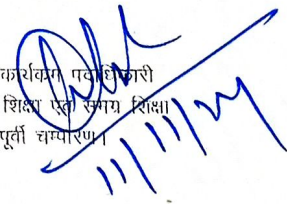 कार्यक्रम पदाधिकारी
शिक्षा एवं समग्र शिक्षा
पूर्वी चम्पारण।
11/11/24